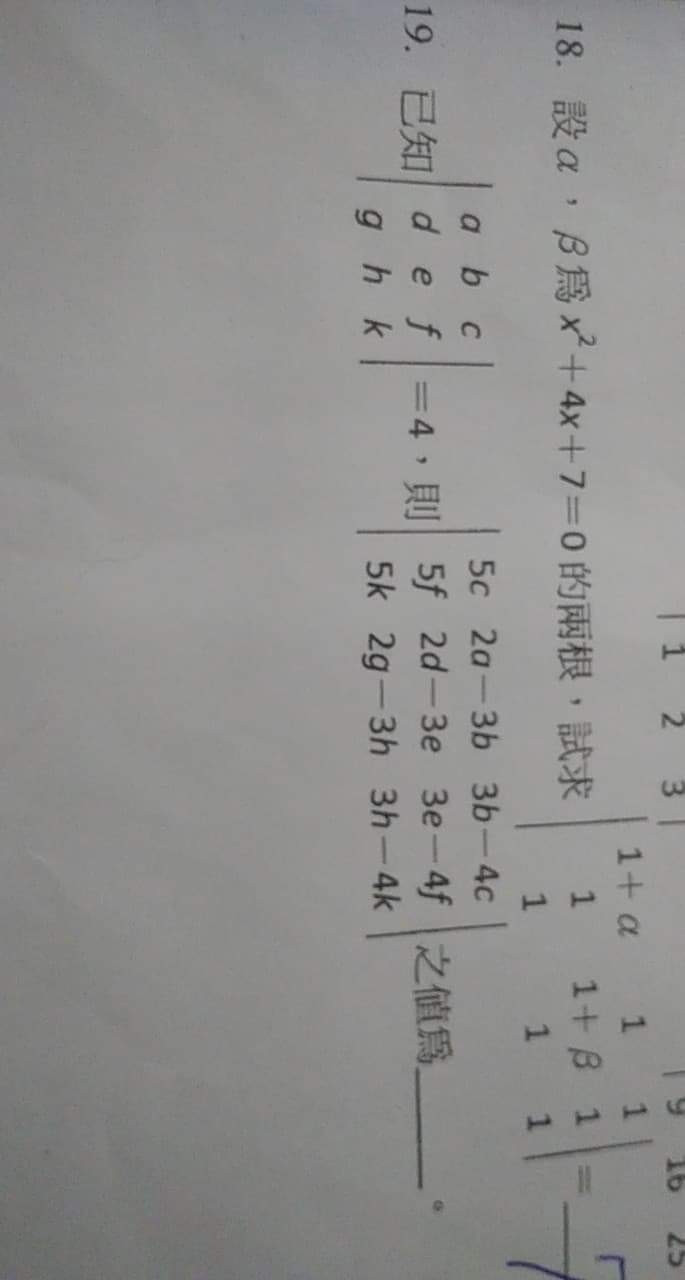 1 2 3
9 16 25
18. 設α，β為x²＋4x＋7＝0的兩根，試求
| 1＋α 1 1 |
| 1 1＋β 1 | ＝
| 1 1 1 |
19. 已知
| a b c |
| d e f | ＝4，則
| g h k |
| 5c 2a－3b 3b－4c |
| 5f 2d－3e 3e－4f | 之值為＿＿＿。
| 5k 2g－3h 3h－4k |